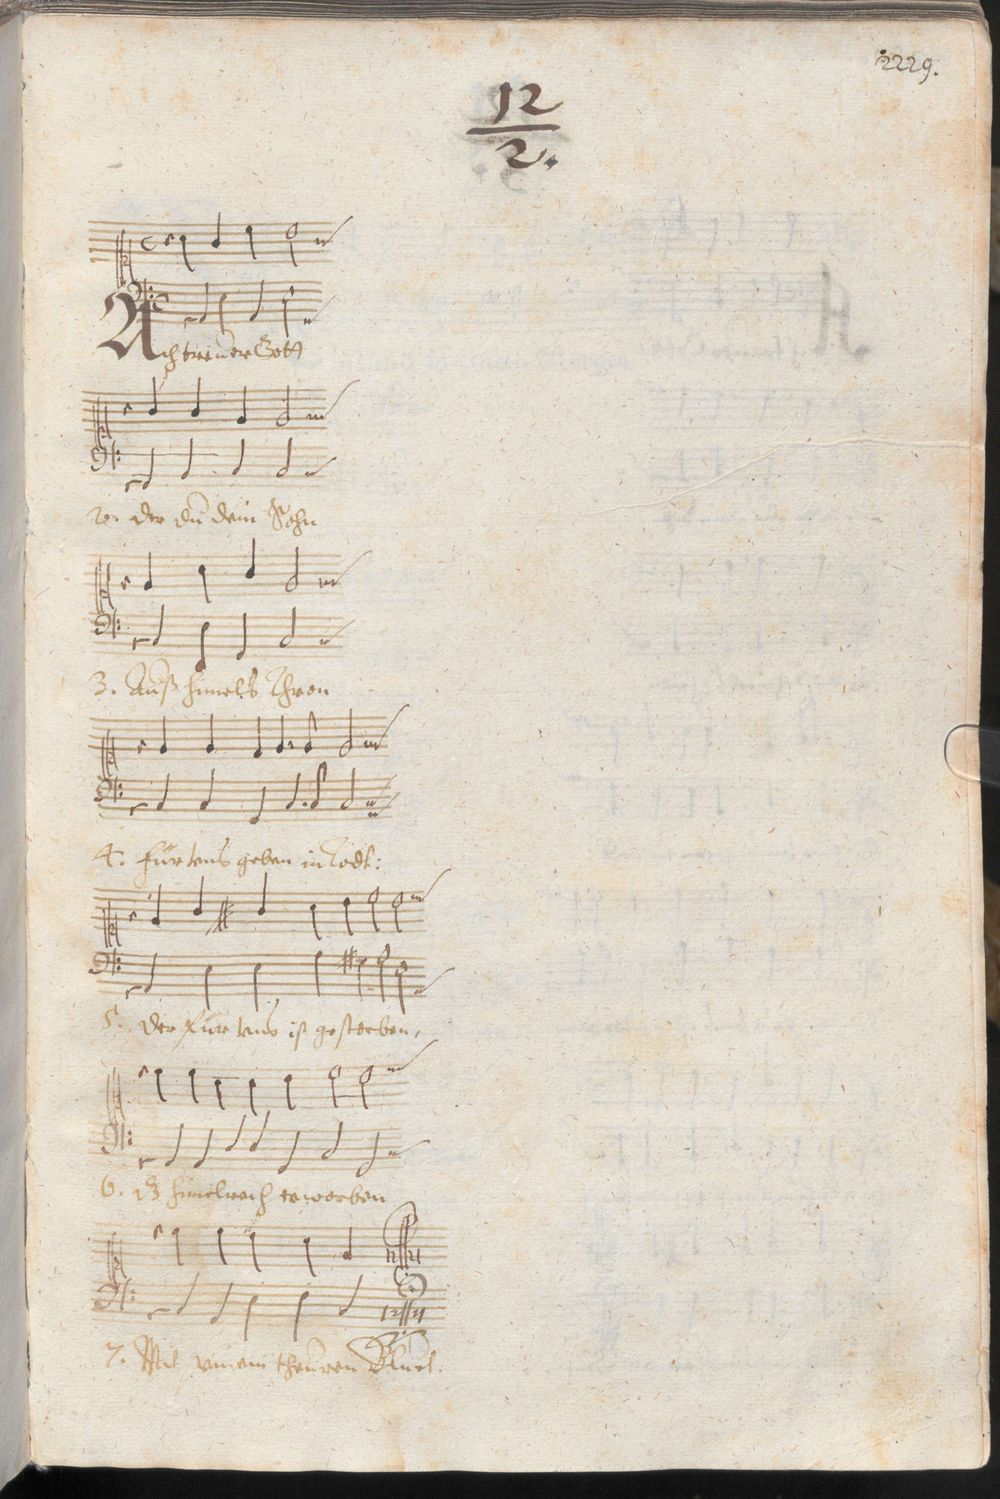 2229.
12
2.
Ach treuer Gott
2. der du dein Sohn
3. Auß himels Thron
4. für vns geben in Todt:
5. der für vns ist gestorben,
6. Ds himelreich erworben
7. Mit seinem theuren Bluet.